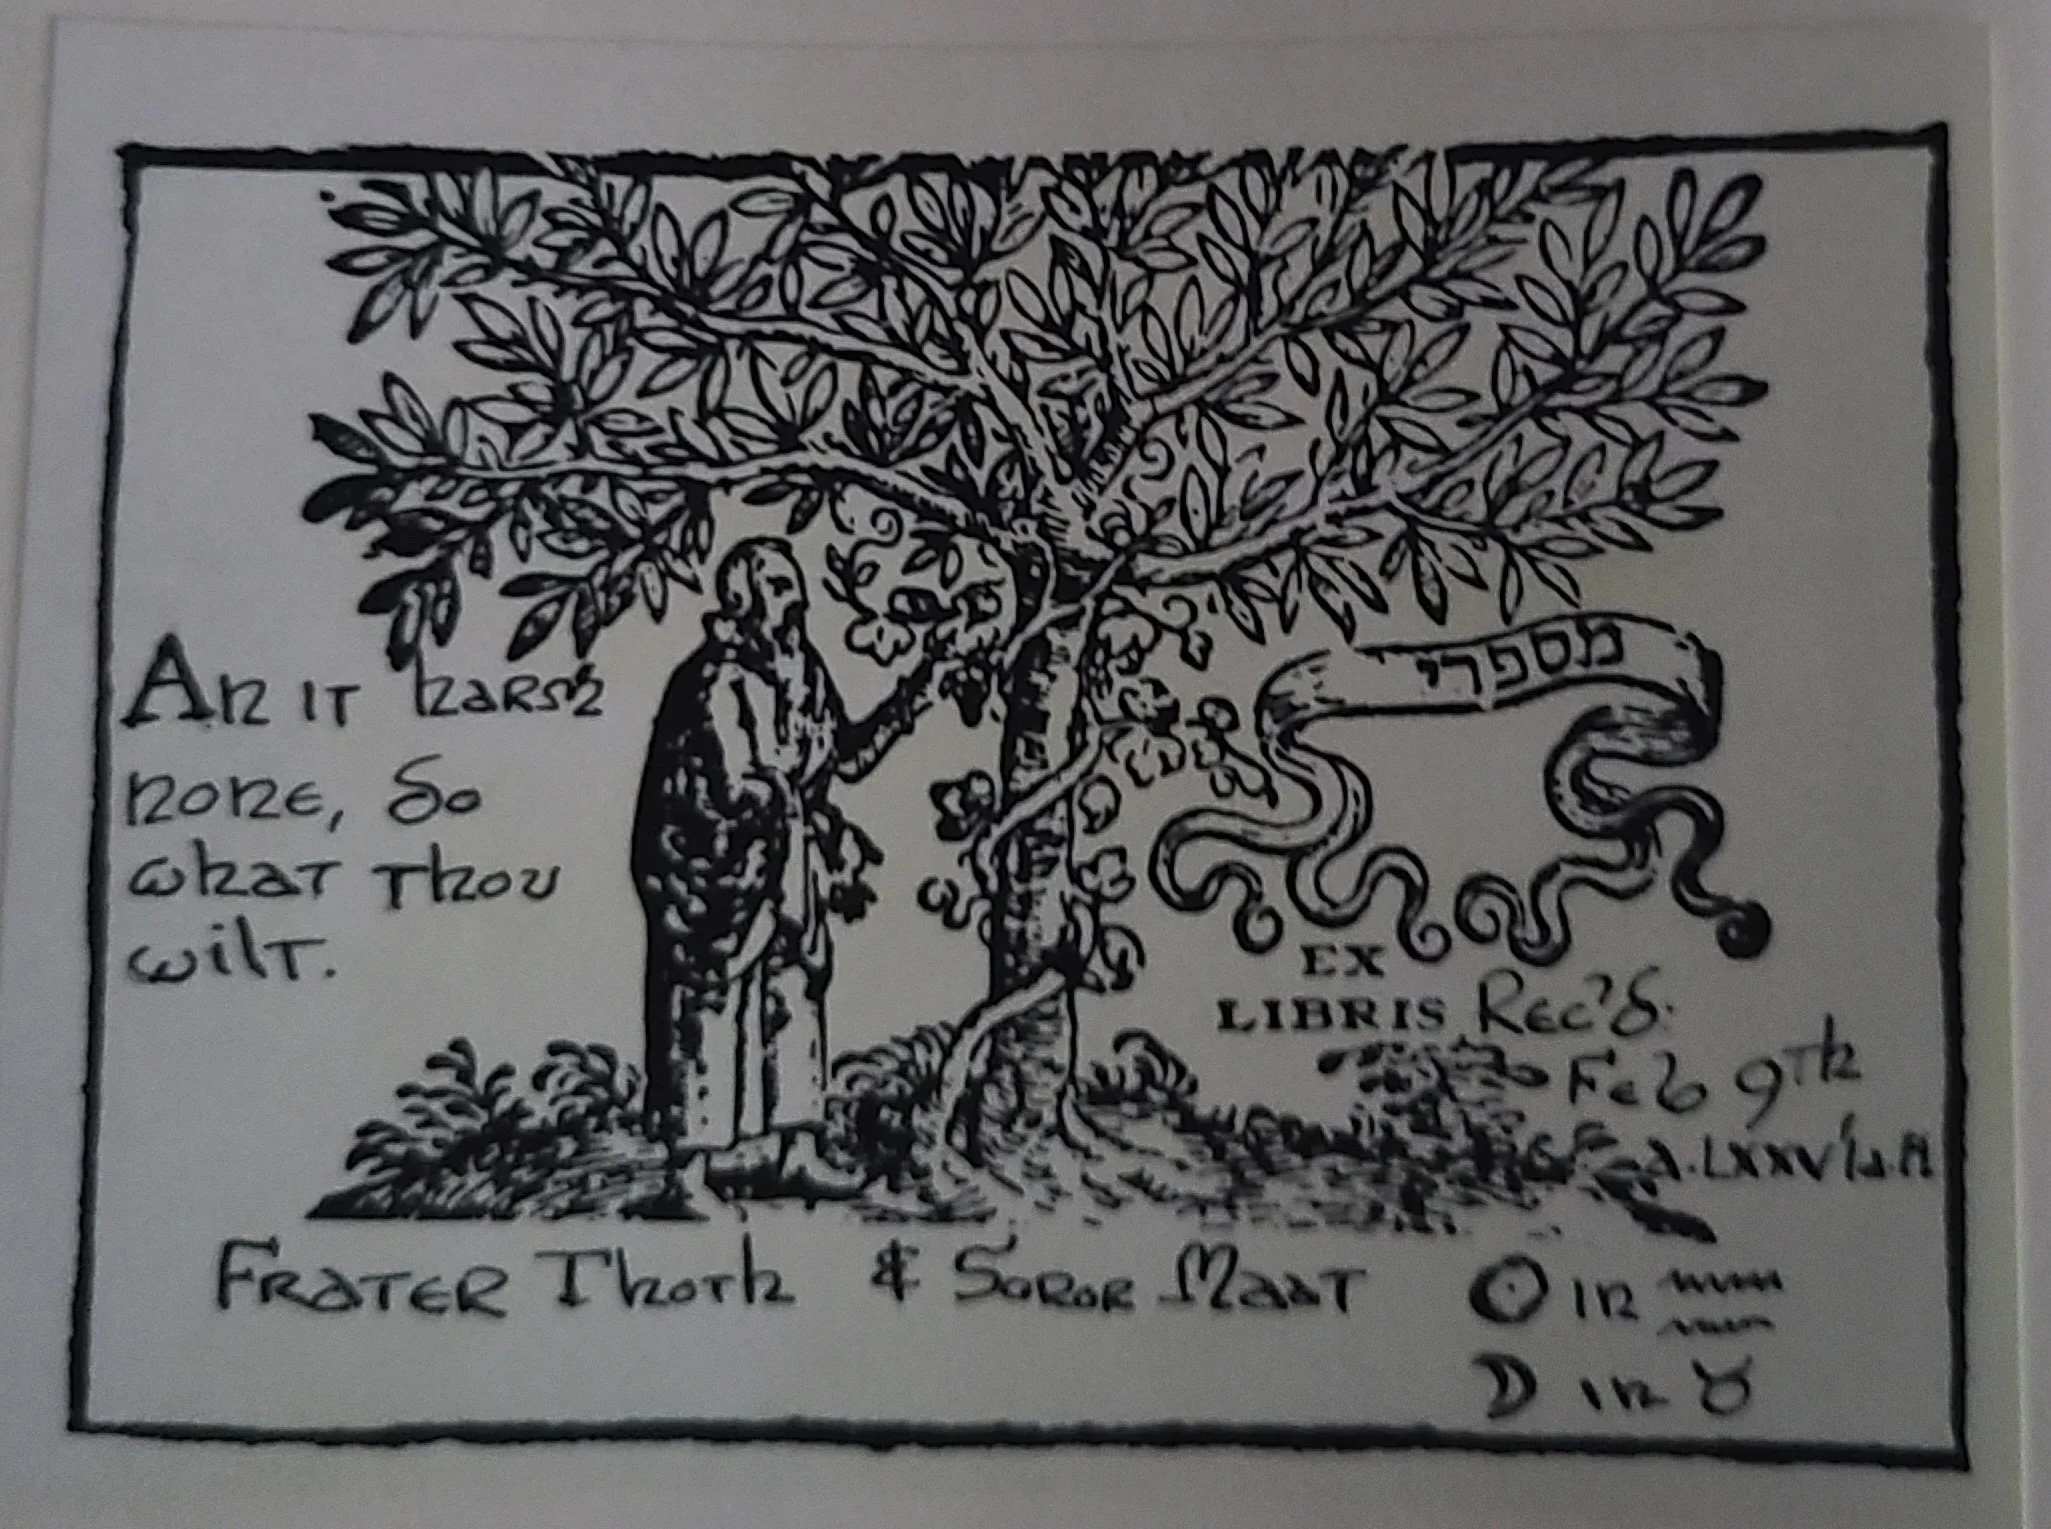 An it harm
none, do
what thou
wilt.
מספרי
EX
LIBRIS Rec'd.
Feb 9th
Frater Thoth & Soror Maat
☉ in ♒
☽ in ♉